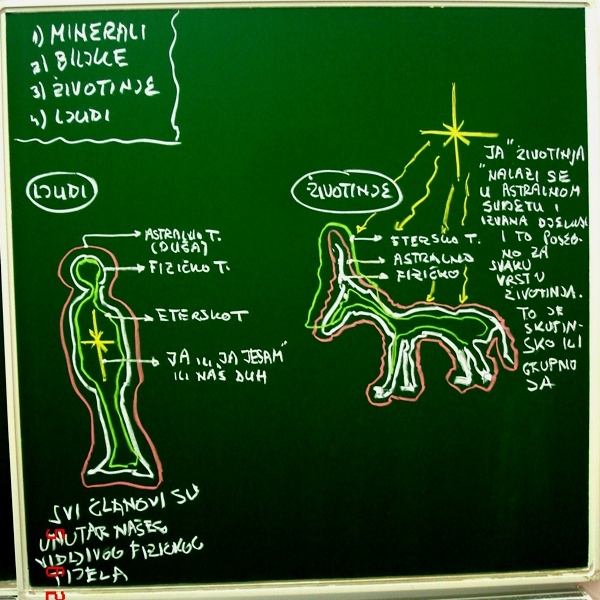 1) MINERALI
2) BILJKE
3) ŽIVOTINJE
4) LJUDI
LJUDI
ASTRALNO T.
(DUŠA)
FIZIČKO T.
ETERSKO T
JA ILI „JA JESAM"
ILI NAŠ DUH
SVI ČLANOVI SU
UNUTAR NAŠEG
VIDLJIVOG FIZIČKOG
TIJELA
ŽIVOTINJE
ETERSKO T.
ASTRALNO
FIZIČKO
„JA" ŽIVOTINJA
NALAZI SE
U ASTRALNOM
SVIJETU I
IZVANA DJELUJE
I TO POSEB-
NO ZA
SVAKU
VRSTU
ŽIVOTINJA.
TO JE
SKUPIN-
SKO ILI
GRUPNO
JA